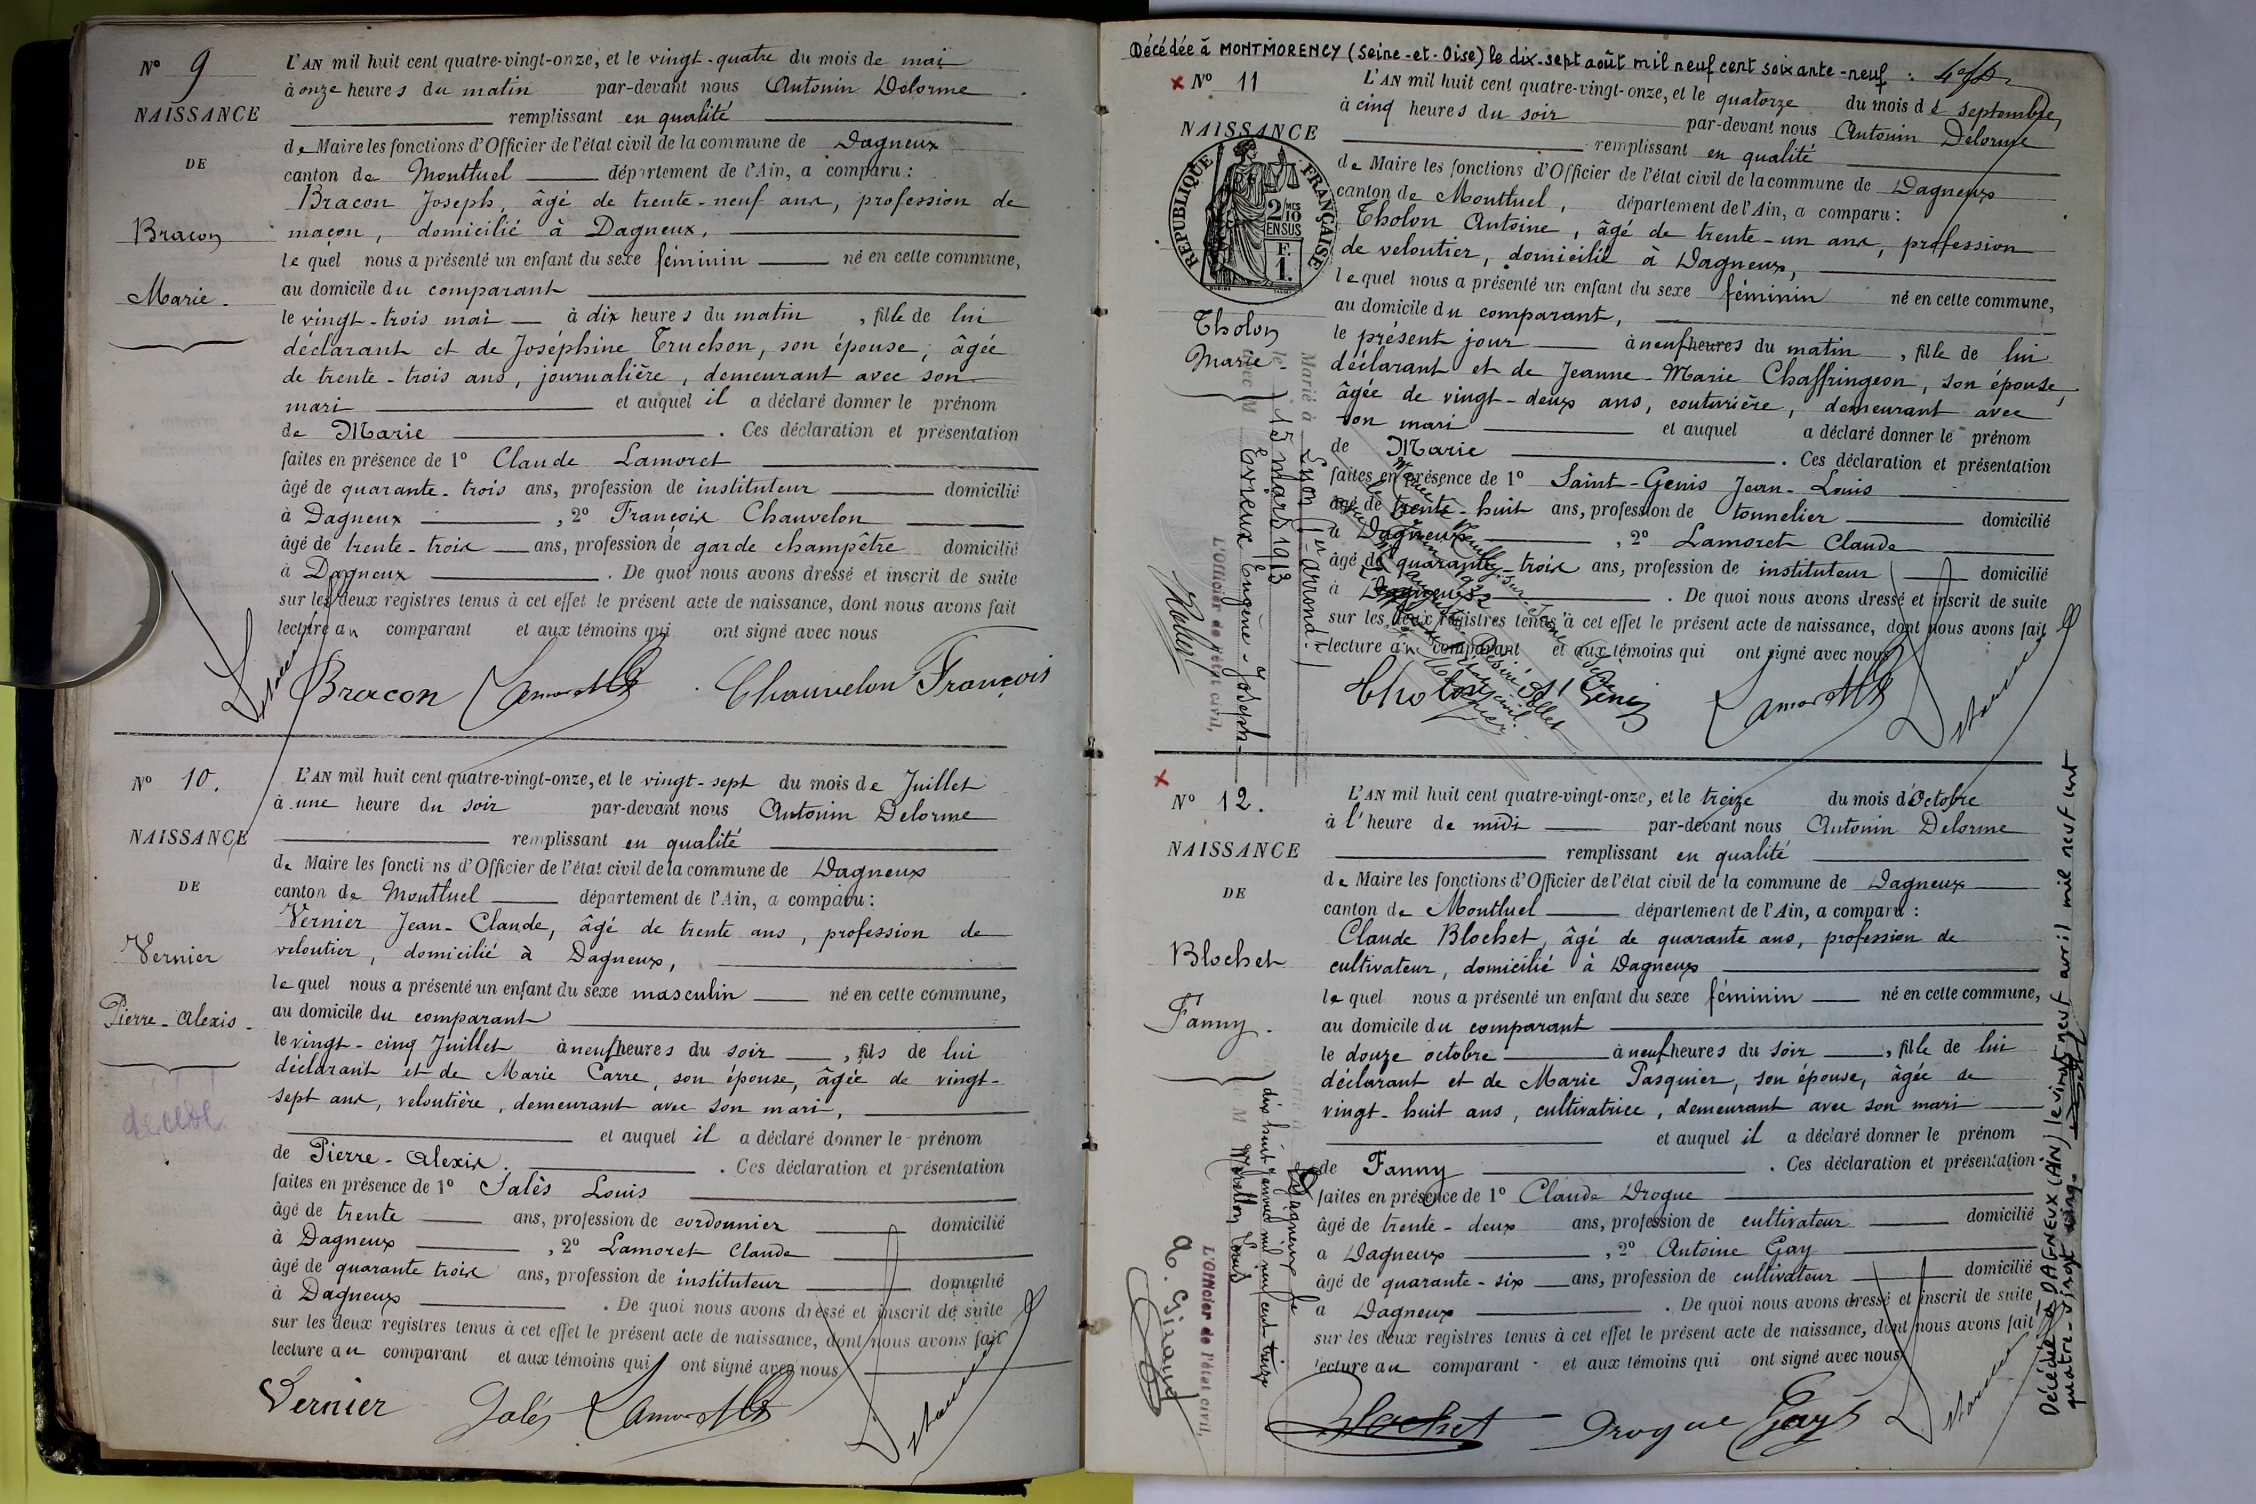 N° 9
NAISSANCE
DE
Bracon
Marie.
L'AN mil huit cent quatre-vingt-onze, et le vingt-quatre du mois de mai
à onze heures du matin par-devant nous Antonin Delorme
remplissant en qualité
de Maire les fonctions d'Officier de l'état civil de la commune de Dagneux
canton de Montluel département de l'Ain, a comparu :
Bracon Joseph, âgé de trente-neuf ans, profession de
maçon, domicilié à Dagneux,
lequel nous a présenté un enfant du sexe féminin né en cette commune,
au domicile du comparant
le vingt-trois mai à dix heures du matin, fille de lui
déclarant et de Joséphine Truchon, son épouse, âgée
de trente-trois ans, journalière, demeurant avec son
mari et auquel il a déclaré donner le prénom
de Marie. Ces déclaration et présentation
faites en présence de 1° Claude Lamoret
âgé de quarante-trois ans, profession de instituteur domicilié
à Dagneux, 2° François Chauvelon
âgé de trente-trois ans, profession de garde champêtre domicilié
à Dagneux. De quoi nous avons dressé et inscrit de suite
sur les deux registres tenus à cet effet le présent acte de naissance, dont nous avons fait
lecture au comparant et aux témoins qui ont signé avec nous
Bracon Lamoret Chauvelon François
N° 10.
NAISSANCE
DE
Vernier
Pierre-Alexis.
décédé
L'AN mil huit cent quatre-vingt-onze, et le vingt-sept du mois de Juillet
à une heure du soir par-devant nous Antonin Delorme
remplissant en qualité
de Maire les foncti ns d'Officier de l'état civil de la commune de Dagneux
canton de Montluel département de l'Ain, a comparu :
Vernier Jean-Claude, âgé de trente ans, profession de
veloutier, domicilié à Dagneux,
lequel nous a présenté un enfant du sexe masculin né en cette commune,
au domicile du comparant
le vingt-cinq Juillet à neuf heures du soir, fils de lui
déclarant et de Marie Carre, son épouse, âgée de vingt-
sept ans, veloutière, demeurant avec son mari,
et auquel il a déclaré donner le prénom
de Pierre-Alexis. Ces déclaration et présentation
faites en présence de 1° Salès Louis
âgé de trente ans, profession de cordonnier domicilié
à Dagneux, 2° Lamoret Claude
âgé de quarante trois ans, profession de instituteur domicilié
à Dagneux. De quoi nous avons dressé et inscrit de suite
sur les deux registres tenus à cet effet le présent acte de naissance, dont nous avons fait
lecture au comparant et aux témoins qui ont signé avec nous
Vernier Salès Lamoret
Décédée à MONTMORENCY (Seine-et-Oise) le dix-sept août mil neuf cent soixante-neuf.
N° 11
NAISSANCE
RÉPUBLIQUE FRANÇAISE
2/10 MES
EN SUS
F.
1.
Tholon
Marie.
L'AN mil huit cent quatre-vingt-onze, et le quatorze du mois de septembre,
à cinq heures du soir par-devant nous Antonin Delorme
remplissant en qualité
de Maire les fonctions d'Officier de l'état civil de la commune de Dagneux
canton de Montluel, département de l'Ain, a comparu :
Tholon Antoine, âgé de trente-un ans, profession
de veloutier, domicilié à Dagneux,
lequel nous a présenté un enfant du sexe féminin né en cette commune,
au domicile du comparant,
le présent jour à neuf heures du matin, fille de lui
déclarant et de Jeanne-Marie Chaffringeon, son épouse,
âgée de vingt-deux ans, couturière, demeurant avec
son mari et auquel a déclaré donner le prénom
de Marie. Ces déclaration et présentation
faites en présence de 1° Saint-Genis Jean-Louis
âgé de trente-huit ans, profession de tonnelier domicilié
à Dagneux, 2° Lamoret Claude
âgé de quarante-trois ans, profession de instituteur domicilié
à Dagneux. De quoi nous avons dressé et inscrit de suite
sur les deux registres tenus à cet effet le présent acte de naissance, dont nous avons fait
lecture au comparant et aux témoins qui ont signé avec nous
Tholon St Genis Lamoret
Marié à Lyon 1er arrond.
le 15 mars 1913
avec M Evrieux Eugène-Joseph
L'Officier de l'état civil,
N° 12.
NAISSANCE
DE
Blochet
Fanny.
L'AN mil huit cent quatre-vingt-onze, et le treize du mois d'Octobre
à l'heure de midi par-devant nous Antonin Delorme
remplissant en qualité
de Maire les fonctions d'Officier de l'état civil de la commune de Dagneux
canton de Montluel département de l'Ain, a comparu :
Claude Blochet, âgé de quarante ans, profession de
cultivateur, domicilié à Dagneux
lequel nous a présenté un enfant du sexe féminin né en cette commune,
au domicile du comparant
le douze octobre à neuf heures du soir, fille de lui
déclarant et de Marie Pasquier, son épouse, âgée de
vingt-huit ans, cultivatrice, demeurant avec son mari
et auquel il a déclaré donner le prénom
de Fanny. Ces déclaration et présentation
faites en présence de 1° Claude Drogue
âgé de trente-deux ans, profession de cultivateur domicilié
à Dagneux, 2° Antoine Gay
âgé de quarante-six ans, profession de cultivateur domicilié
à Dagneux. De quoi nous avons dressé et inscrit de suite
sur les deux registres tenus à cet effet le présent acte de naissance, dont nous avons fait
lecture au comparant et aux témoins qui ont signé avec nous
Blochet Drogue Gay
Dagneux le
dix huit janvier mil neuf cent treize
L'Officier de l'état civil,
Décédée à DAGNEUX (AIN) le vingt neuf avril mil neuf cent
quatre-vingt cinq.